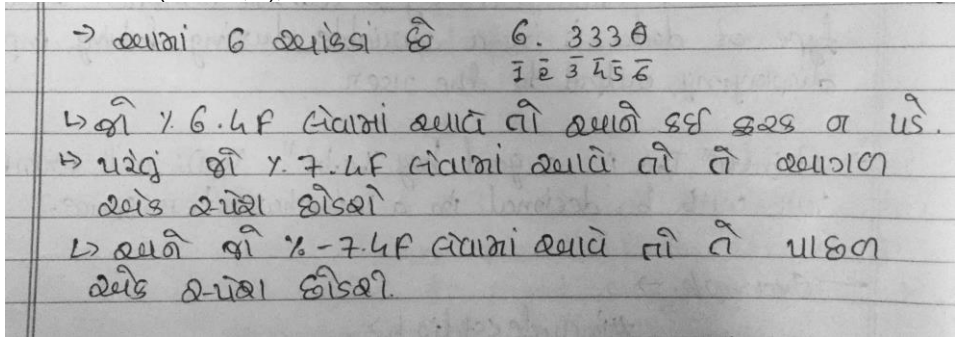 → આમાં 6 આંકડા છે 6. 3 3 3 0
1 2 3 4 5 6
↳ જો %6.4F લેવામાં આવે તો આને કઈ ફરક ન પડે.
↳ પરંતું જો %7.4F લેવામાં આવે તો તે આગળ
એક સ્પેશ છોડશે
↳ અને જો %-7.4F લેવામાં આવે તો તે પાછળ
એક સ્પેશ છોડશે.